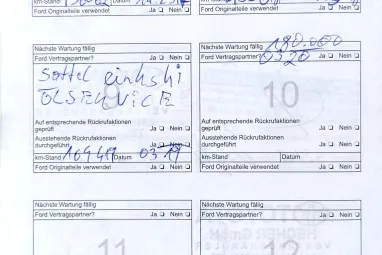 km-Stand Datum
Ford Originalteile verwendet Ja Nein
Ford Originalteile verwendet Ja Nein
Nächste Wartung fällig
Ford Vertragspartner? Ja Nein
ÖLSERVICE
9
Auf entsprechende Rückrufaktionen
geprüft Ja Nein
Ausstehende Rückrufaktionen
durchgeführt Ja Nein
km-Stand Datum 03 19
Ford Originalteile verwendet Ja Nein
Nächste Wartung fällig 190.000
Ford Vertragspartner? 0320 Ja Nein
10
Auf entsprechende Rückrufaktionen
geprüft Ja Nein
Ausstehende Rückrufaktionen
durchgeführt Ja Nein
km-Stand Datum
Ford Originalteile verwendet Ja Nein
Nächste Wartung fällig
Ford Vertragspartner? Ja Nein
11
Nächste Wartung fällig
Ford Vertragspartner? Ja Nein
12